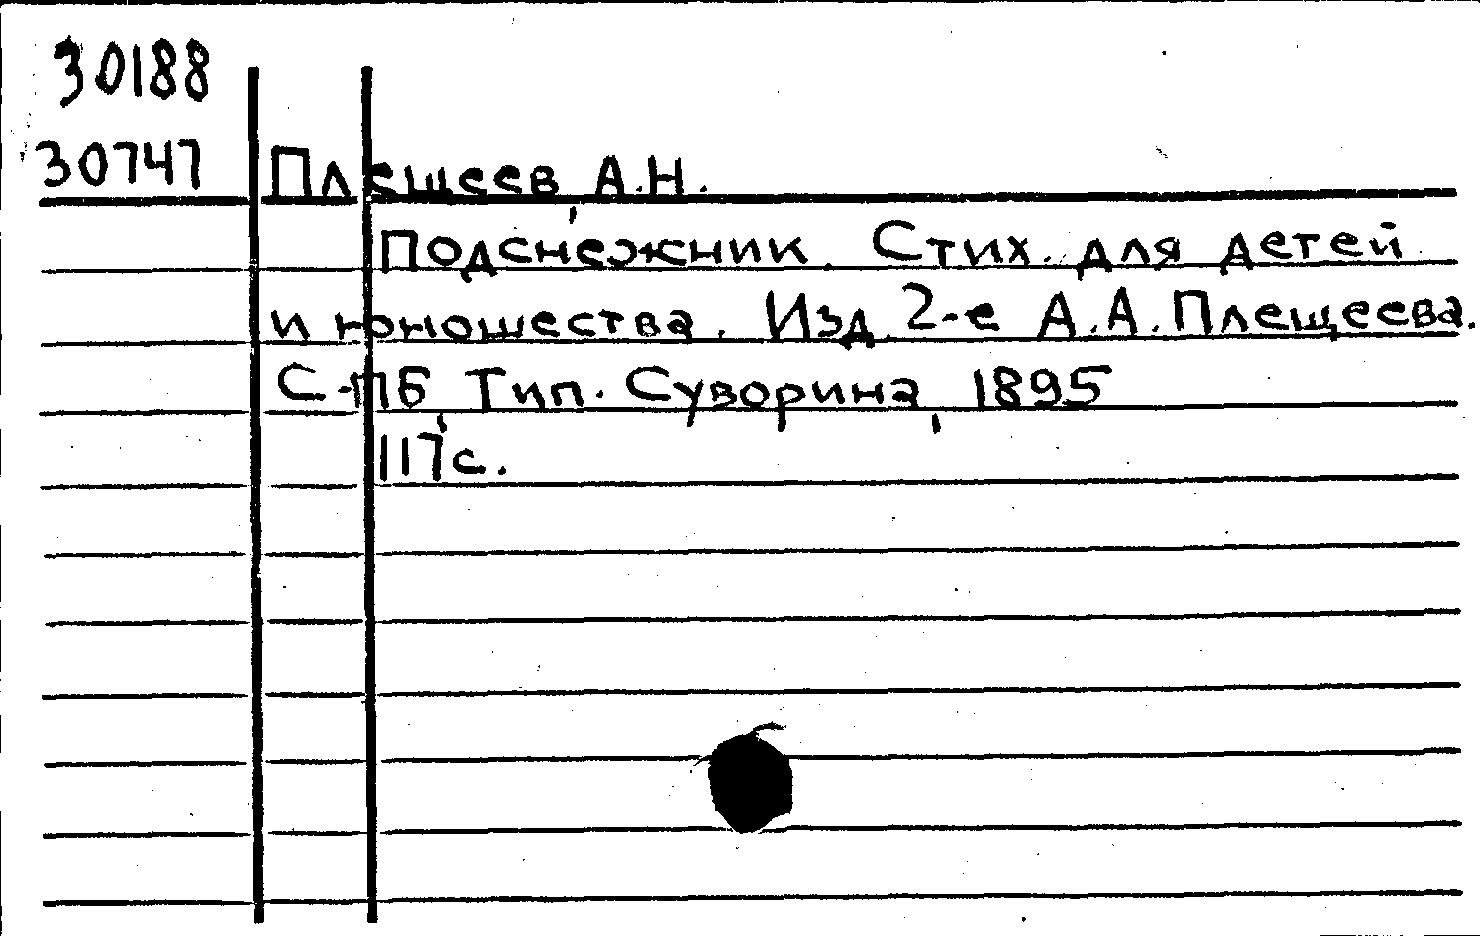 30188
30747 Плещеев, А.Н.
Подснежник. Стих. для детей
и юношества. Изд. 2-е А.А. Плещеева.
С-ПБ, Тип. Суворина, 1895
117с.